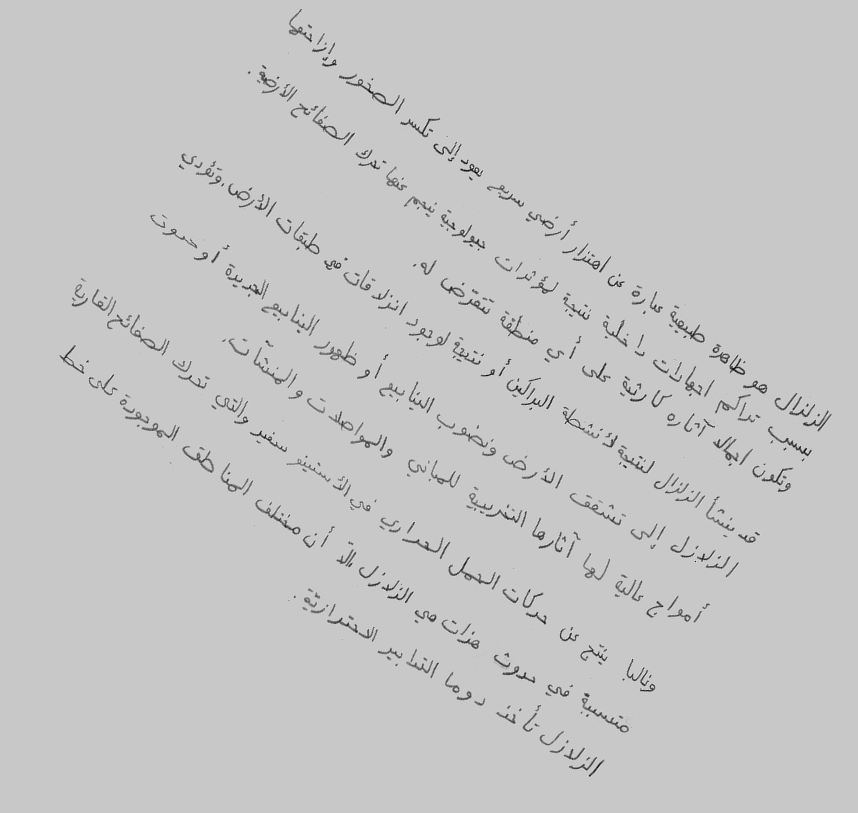 الزلزال هو ظاهرة طبيعية عبارة عن اهتزاز أرضي سريع يعود إلى تكسر الصخور وإزاحتها
بسبب تراكم اجهادات داخلية نتيجة لمؤثرات جيولوجية ينجم عنها تحرك الصفائح الأرضية.
وتكون اجمالا آثاره كارثية على أي منطقة تتعرّض له.
قد ينشأ الزلزال لنتيجة لأنشطة البراكين أو نتيجة لوجود انزلاقات في طبقات الأرض، وتؤدي
الزلازل إلى تشقق الأرض ونضوب الينابيع أو ظهور الينابيع الجديدة أو حدوث
أمواج عالية لها آثارها التخريبية للمباني والمواصلات والمنشآت.
وغالبا ينتج عن حركات الحمل الحراري في الأستينو سفير والتي تحرك الصفائح القارية
متسببة في حدوث هزات هي الزلازل إلاّ أن مختلف المناطق الموجودة على خط
الزلازل تأخذ دوما التدابير الاحترازيّة.